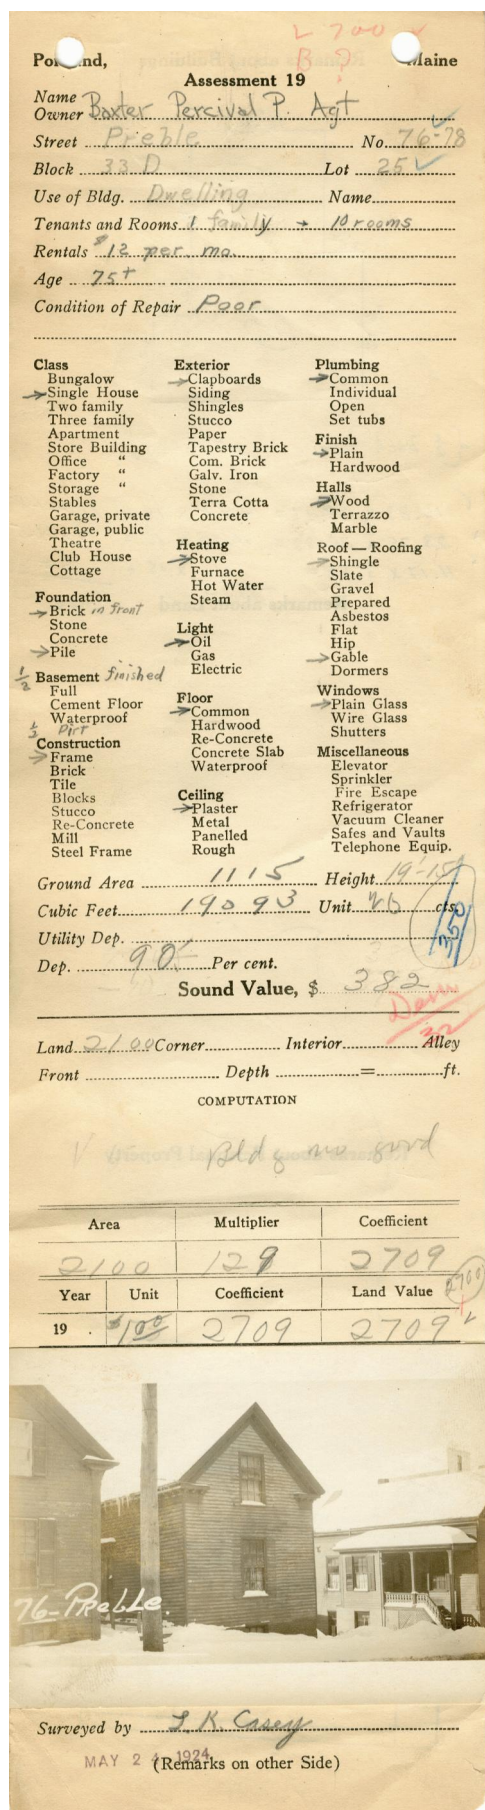 L 700 ✓
B ?
Portland, Maine
Assessment 19
Name
Owner Baxter Percival P. Agt
Street Preble No. 76-78
Block 33 D Lot 25
Use of Bldg. Dwelling Name
Tenants and Rooms 1 family → 10 rooms
Rentals $12 per mo.
Age 75+
Condition of Repair Poor
Class
Bungalow
Single House
Two family
Three family
Apartment
Store Building
Office "
Factory "
Storage "
Stables
Garage, private
Garage, public
Theatre
Club House
Cottage
Foundation
Brick in front
Stone
Concrete
Pile
1/2 Basement finished
Full
Cement Floor
Waterproof
1/2 Dirt
Construction
Frame
Brick
Tile
Blocks
Stucco
Re-Concrete
Mill
Steel Frame
Exterior
Clapboards
Siding
Shingles
Stucco
Paper
Tapestry Brick
Com. Brick
Galv. Iron
Stone
Terra Cotta
Concrete
Heating
Stove
Furnace
Hot Water
Steam
Light
Oil
Gas
Electric
Floor
Common
Hardwood
Re-Concrete
Concrete Slab
Waterproof
Ceiling
Plaster
Metal
Panelled
Rough
Plumbing
Common
Individual
Open
Set tubs
Finish
Plain
Hardwood
Halls
Wood
Terrazzo
Marble
Roof — Roofing
Shingle
Slate
Gravel
Prepared
Asbestos
Flat
Hip
Gable
Dormers
Windows
Plain Glass
Wire Glass
Shutters
Miscellaneous
Elevator
Sprinkler
Fire Escape
Refrigerator
Vacuum Cleaner
Safes and Vaults
Telephone Equip.
Ground Area 1115 Height 19'-15'
Cubic Feet 19093 Unit cts.
350
Utility Dep.
Dep. 90 Per cent.
Sound Value, $ 382
Down
32
Land 2100 Corner Interior Alley
Front Depth = ft.
COMPUTATION
Bldg no good
Area Multiplier Coefficient
2100 129 2709
Year Unit Coefficient Land Value 2700
19 . $1.00 2709 2709
76-Preble.
Surveyed by L. K. Casey
MAY 24 1924
(Remarks on other Side)